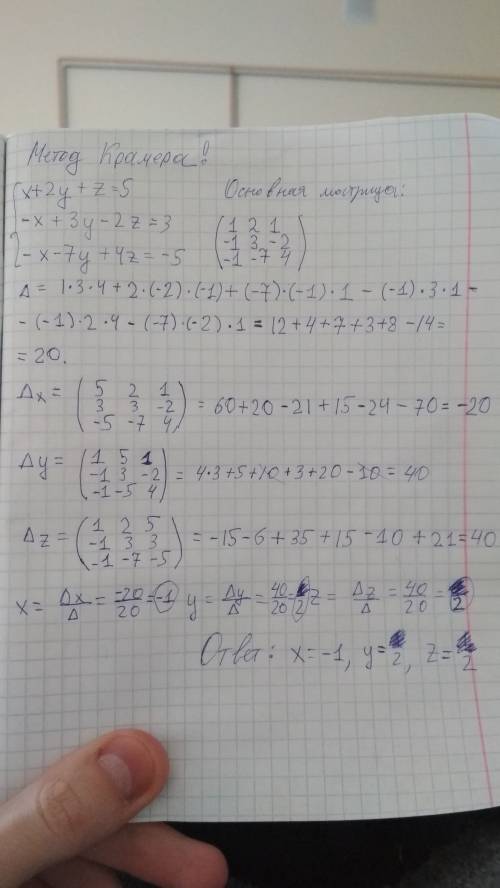 Метод Крамера!
x+2y+z=5 Основная матрица:
-x+3y-2z=3
-x-7y+4z=-5
1 2 1
-1 3 -2
-1 -7 4
Δ = 1·3·4+2·(-2)·(-1)+(-7)·(-1)·1-(-1)·3·1-
-(-1)·2·4-(-7)·(-2)·1=12+4+7+3+8-14=
=20.
Δx = (5 2 1
3 3 -2
-5 -7 4) = 60+20-21+15-24-70=-20
Δy = (1 5 1
-1 3 -2
-1 -5 4) = 4·3+5+10+3+20-10=40
Δz = (1 2 5
-1 3 3
-1 -7 -5) = -15-6+35+15-10+21=40
x = Δx/Δ = -20/20 = -1 y = Δy/Δ = 40/20 = 2 z = Δz/Δ = 40/20 = 2
Ответ: x=-1, y=2, z=2